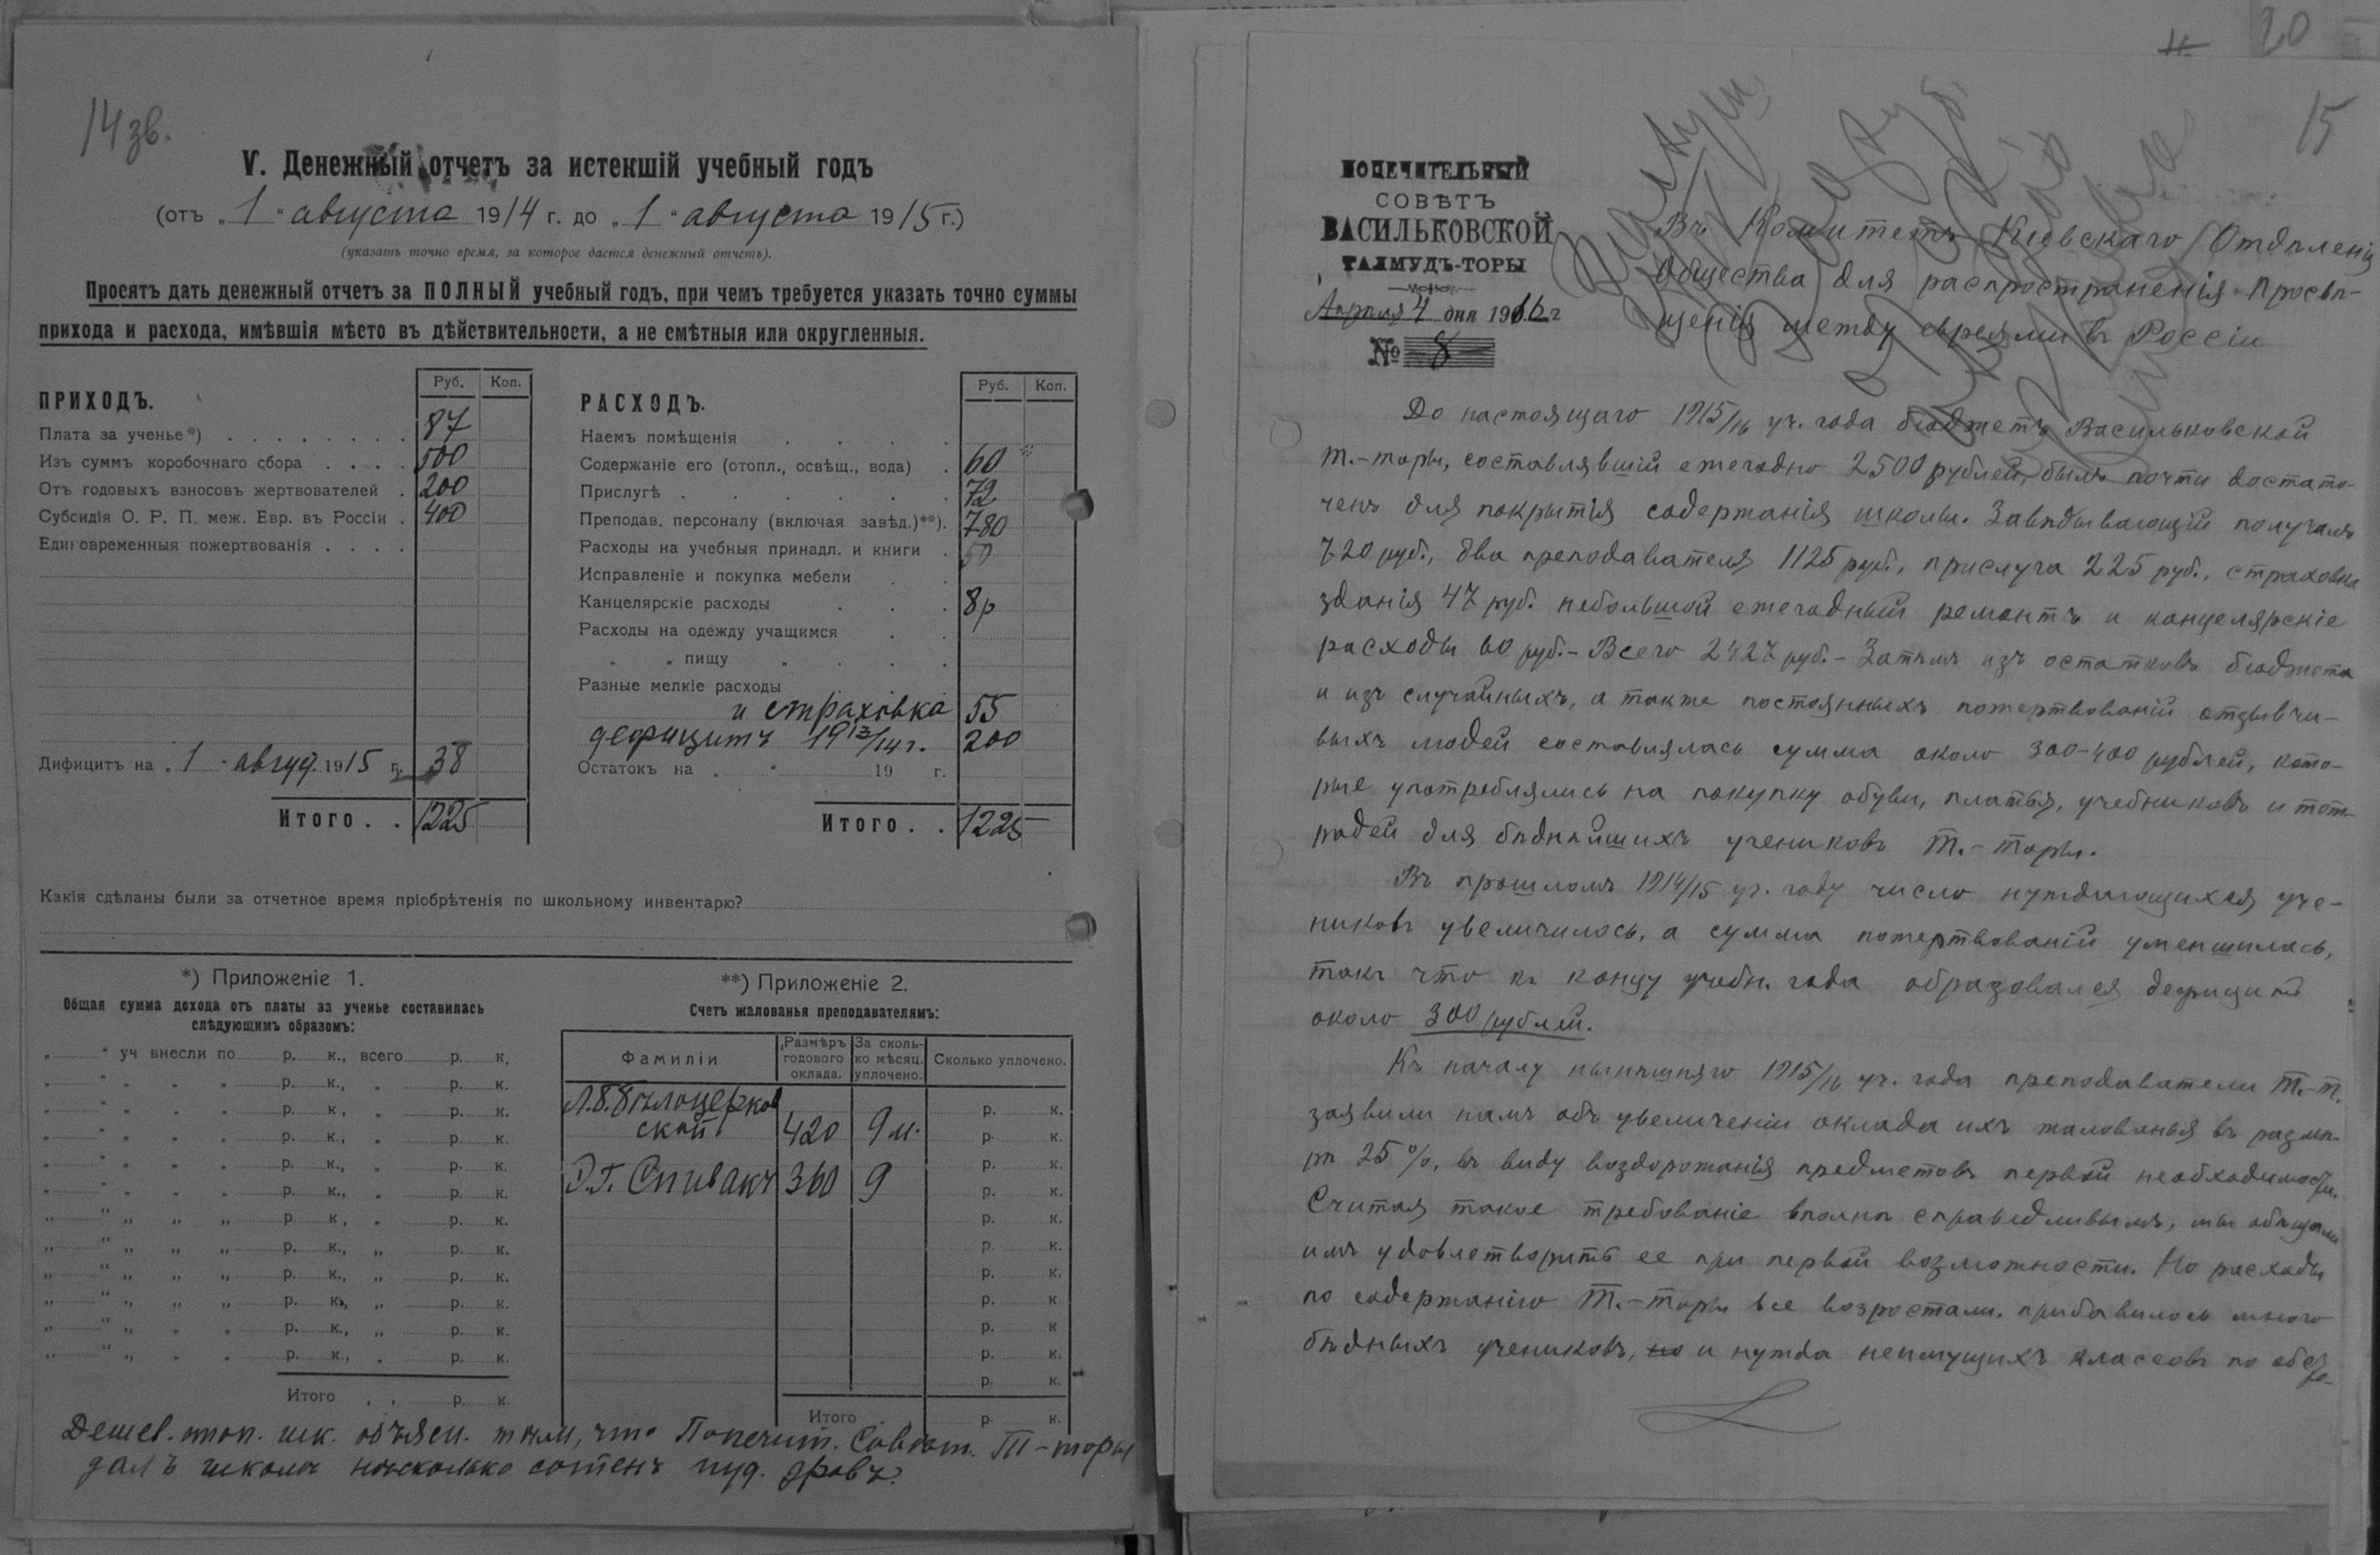 14 зв.
V. Денежный отчетъ за истекшій учебный годъ
(отъ „ 1 " августа 1914 г. до „ 1 " августа 1915 г.)
(указать точно время, за которое дается денежный отчетъ).
Просятъ дать денежный отчетъ за ПОЛНЫЙ учебный годъ, при чемъ требуется указать точно суммы
прихода и расхода, имѣвшія мѣсто въ дѣйствительности, а не смѣтныя или округленныя.
ПРИХОДЪ. Руб. Коп.
Плата за ученье*) . . . . . . . . 87
Изъ суммъ коробочнаго сбора . . . . 500
Отъ годовыхъ взносовъ жертвователей . 200
Субсидія О. Р. П. меж. Евр. въ Россіи . 400
Единовременныя пожертвованія . . . .
Дифицитъ на „ 1 " авгус. 1915 г. 38
Итого . . 1225
РАСХОДЪ. Руб. Коп.
Наемъ помѣщенія . . . .
Содержаніе его (отопл., освѣщ., вода) . 60
Прислугѣ . . . . . . 72
Преподав. персоналу (включая завѣд.)**). 780
Расходы на учебныя принадл. и книги . 50
Исправленіе и покупка мебели . .
Канцелярскіе расходы . . . 8р
Расходы на одежду учащимся . .
„ „ пищу „ . . .
Разные мелкіе расходы
и страховка 55
дефицитъ 1913/14 г. 200
Остатокъ на „ " 19 г.
Итого . . 1225
Какія сдѣланы были за отчетное время пріобрѣтенія по школьному инвентарю?
*) Приложеніе 1.
Общая сумма дохода отъ платы за ученье составилась
слѣдующимъ образомъ:
„ " уч внесли по р. к., всего р. к.
„ " „ „ „ р. к., „ р. к.
„ " „ „ „ р. к., „ р. к.
„ " „ „ „ р. к., „ р. к.
„ " „ „ „ р. к., „ р. к.
„ " „ „ „ р. к., „ р. к.
„ " „ „ „ р. к., „ р. к.
„ " „ „ „ р. к., „ р. к.
„ " „ „ „ р. к., „ р. к.
„ " „ „ „ р. к., „ р. к.
„ " „ „ „ р. к., „ р. к.
„ " „ „ „ р. к., „ р. к.
Итого . . р. к.
**) Приложеніе 2.
Счетъ жалованья преподавателямъ:
Фамиліи Размѣръ годового оклада. За сколько мѣсяц. уплочено. Сколько уплочено.
Л.Б. Бѣлоцерков
скій 420 9 м. р. к.
Э.Г. Спивакъ 360 9 р. к.
Итого р. к.
Дешев. отоп. шк. объясн. тѣмъ, что Попечит. Совѣтъ Т-торы
далъ школѣ нѣсколько сотенъ пуд. дровъ.
20
15
ПОПЕЧИТЕЛЬНЫЙ
СОВѢТЪ
ВАСИЛЬКОВСКОЙ
ТАЛМУДЪ-ТОРЫ
Апрѣля 4 дня 1916 г
№ 8
Въ Комитетъ Кіевскаго Отдѣленія
Общества для распространенія Просвѣ-
щенія между евреями въ Россіи
До настоящаго 1915/16 уч. года бюджетъ Васильковской
Т.-торы, составлявшій ежегодно 2500 рублей, былъ почти достато-
ченъ для покрытія содержанія школы. Завѣдывающій получалъ
720 руб., два преподавателя 1125 руб., прислуга 225 руб., страховка
зданія 47 руб. небольшой ежегодный ремонтъ и канцелярскіе
расходы 60 руб.- Всего 2427 руб.- Затѣмъ изъ остатковъ бюджета
и изъ случайныхъ, а также постоянныхъ пожертвованій отзывчи-
выхъ людей составлялась сумма около 300-400 рублей, кото-
рые употреблялись на покупку обуви, платья, учебниковъ и тет-
радей для бѣднѣйшихъ учениковъ Т.-торы.
Въ прошломъ 1914/15 уч. году число нуждающихся уче-
никовъ увеличилось, а сумма пожертвованій уменшилась,
такъ что къ концу учебн. года образовался дефицитъ
около 300 рублей.
Къ началу нынѣшняго 1915/16 уч. года преподаватели Т.-Т.
заявили намъ объ увеличеніи оклада ихъ жалованья въ размѣ-
рѣ 25%, въ виду вздорожанія предметовъ первой необходимости.
Считая такое требованіе вполнѣ справедливымъ, мы обѣщали
имъ удовлетворить ее при первой возможности. Но расходы
по содержанію Т.-Торы все возростали. прибавилось много
бѣдныхъ учениковъ, но и нужда неимущихъ классовъ по